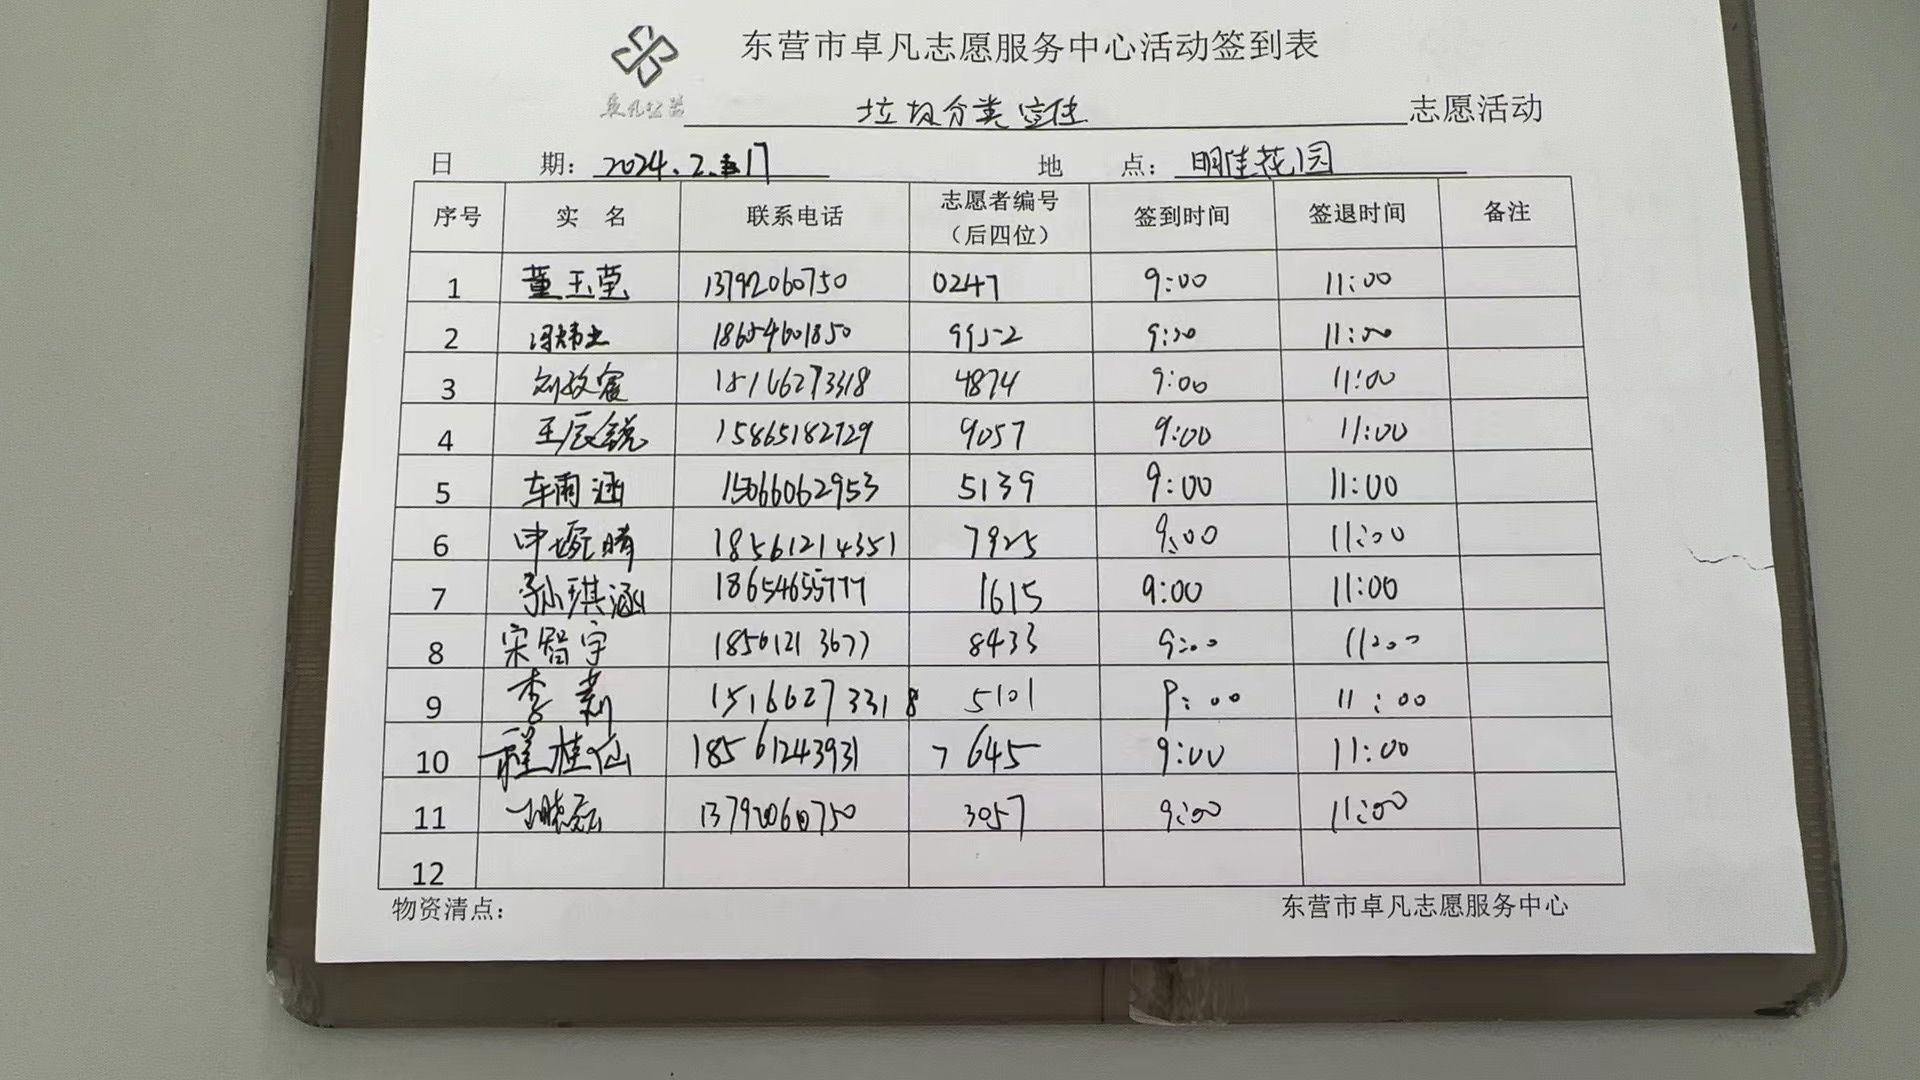 东营市卓凡志愿服务中心活动签到表
卓凡公益
垃圾分类宣传 志愿活动
日 期: 2024.2.17 地 点: 明佳花园
序号 实 名 联系电话 志愿者编号（后四位） 签到时间 签退时间 备注
1 董玉莹 13792060750 0247 9:00 11:00
2 18654601850 9952 9:00 11:00
3 刘政宸 18166273318 4874 9:00 11:00
4 王辰锐 15865182729 9057 9:00 11:00
5 车雨涵 15066062953 5139 9:00 11:00
6 申婉晴 18561214351 7925 9:00 11:00
7 孙琪涵 18654655777 1615 9:00 11:00
8 宋智宇 18561213677 8433 9:00 11:00
9 李莉 15166273318 5101 9:00 11:00
10 程桂仙 18561243931 7645 9:00 11:00
11 13792060750 3057 9:00 11:00
12
物资清点: 东营市卓凡志愿服务中心